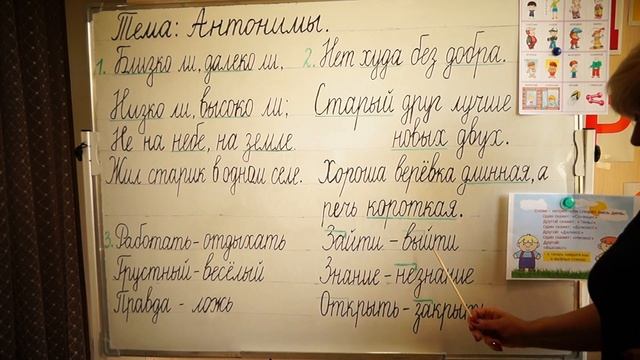 Тема: Антонимы.
1. Близко ли, далеко ли,
Низко ли, высоко ли;
Не на небе, на земле.
Жил старик в одном селе.
2. Нет худа без добра.
Старый друг лучше
новых двух.
Хороша верёвка длинная, а
речь короткая.
3. Работать-отдыхать
Грустный-весёлый
Правда - ложь
Зайти - выйти
Знание-незнание
Открыть-закрыть